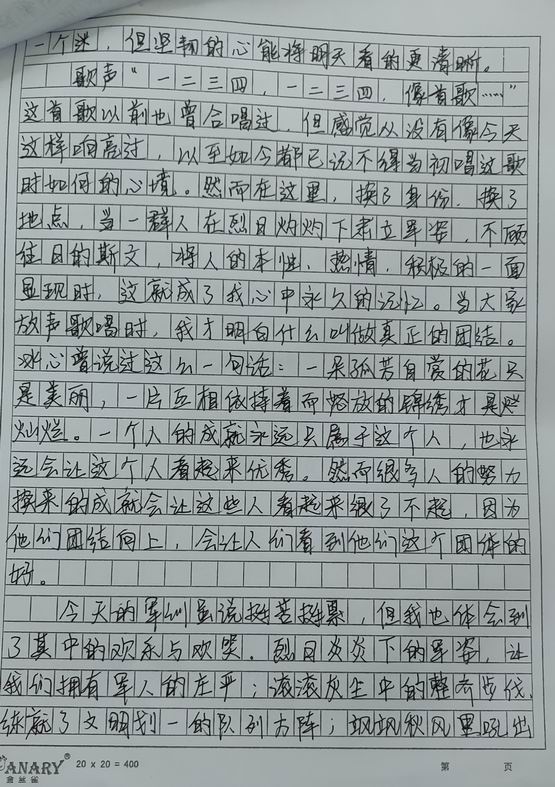 一个迷，但坚韧的心能将明天看的更清晰。
歌声“一二三四，一二三四，像首歌……”
这首歌以前也曾合唱过，但感觉从没有像今天
这样响亮过，以至如今都已记不得当初唱这歌
时如何的心情。然而在这里，换了身份，换了
地点，当一群人在烈日灼灼下肃立军姿，不顾
往日的斯文，将人的本性、热情，积极的一面
显现时，这就成了我心中永久的记忆。当大家
放声歌唱时，我才明白什么叫做真正的团结。
冰心曾说过这么一句话：一朵孤芳自赏的花只
是美丽，一片互相依持着而怒放的锦绣才是烂
灿烂。一个人的成就永远只属于这个人，也永
远会让这个人看起来优秀。然而很多人的努力
换来的成就会让这些人看起来很了不起，因为
他们团结向上，会让人们看到他们这个团体的
好。
今天的军训虽说挺苦挺累，但我也体会到
了其中的欢乐与欢笑。烈日炎炎下的军姿，让
我们拥有军人的庄严；滚滚灰尘中的整齐步伐，
练就了文明划一的队列方阵；飒飒秋风里吼出
CANARY®
金丝雀
20 x 20 = 400
第 页